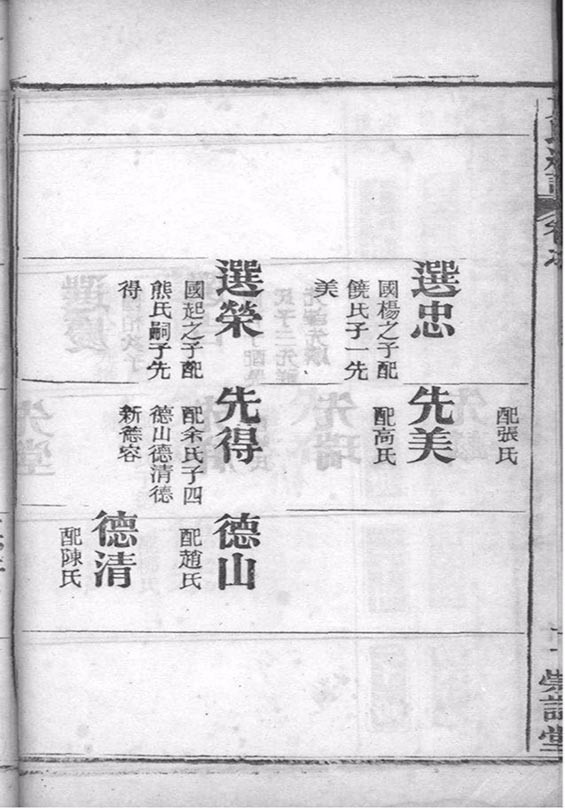 配張氏
選忠
國楊之子配
饒氏子一先
美
先美
配高氏
選榮
國起之子配
熊氏嗣子先
得
先得
配余氏子四
德山德清德
新德容
德山
配趙氏
德清
配陳氏
崇訓堂